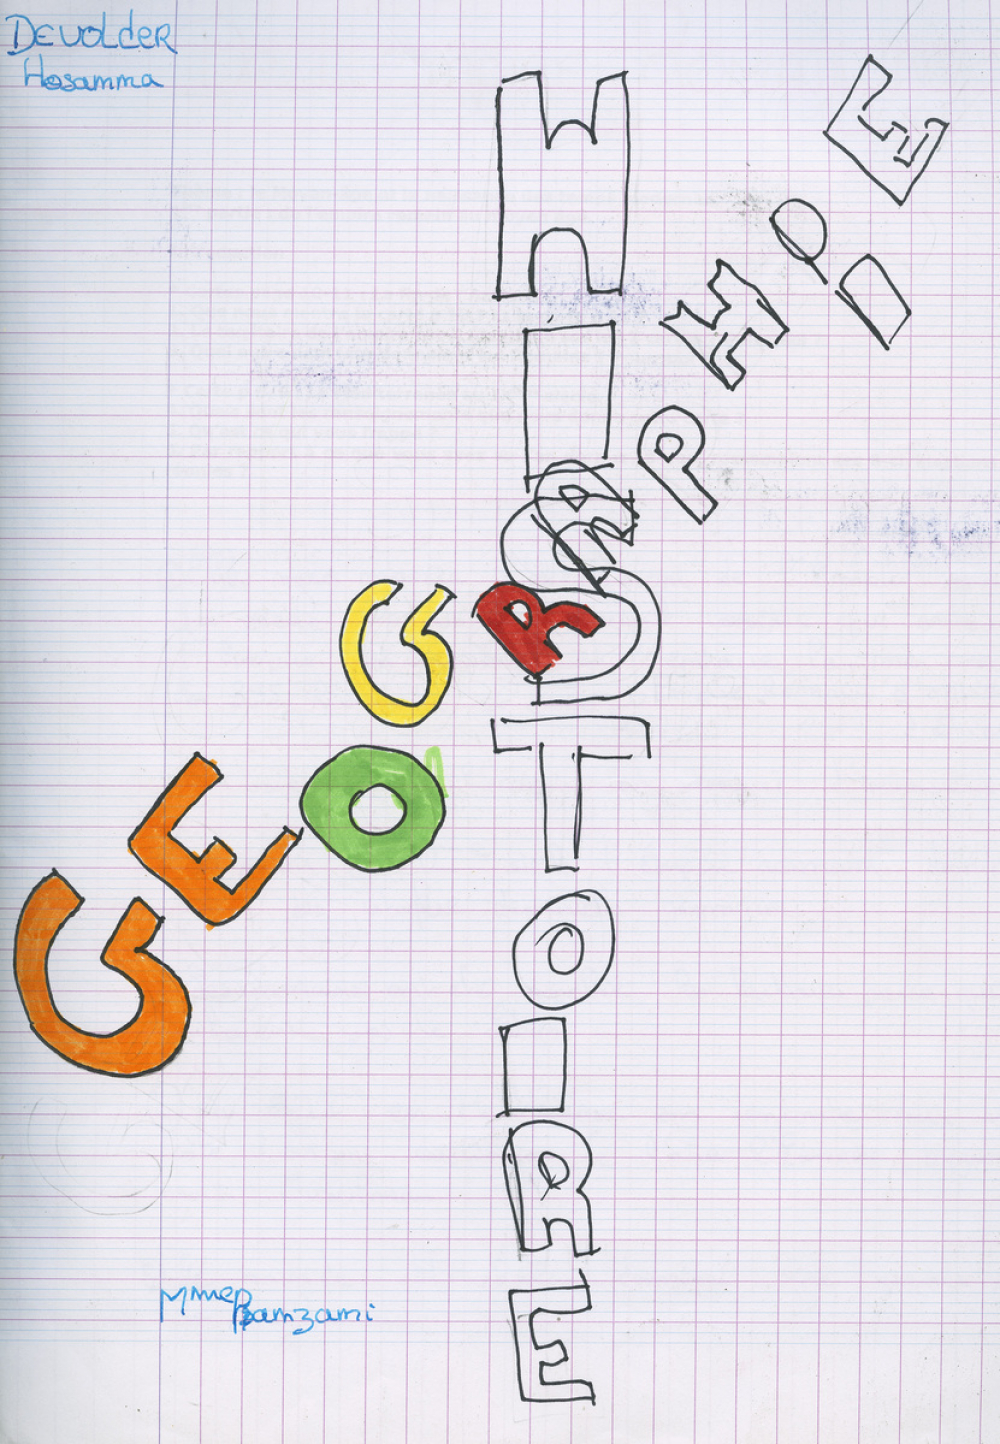 DEVOLdER
Hosamma
HISTOIRE
GEOGRAPHIE
Mme